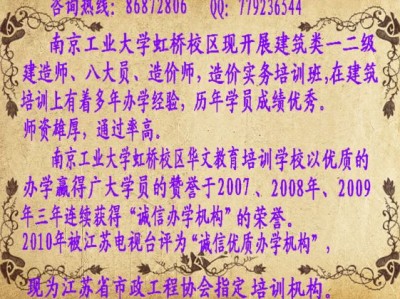 咨询热线：86872806 QQ：779236544
南京工业大学虹桥校区现开展建筑类一二级
建造师、八大员、造价师，造价实务培训班,在建筑
培训上有着多年办学经验，历年学员成绩优秀。
师资雄厚，通过率高。
南京工业大学虹桥校区华文教育培训学校以优质的
办学赢得广大学员的赞誉于2007、2008年、2009
年三年连续获得“诚信办学机构”的荣誉。
2010年被江苏电视台评为“诚信优质办学机构”，
现为江苏省市政工程协会指定培训机构。